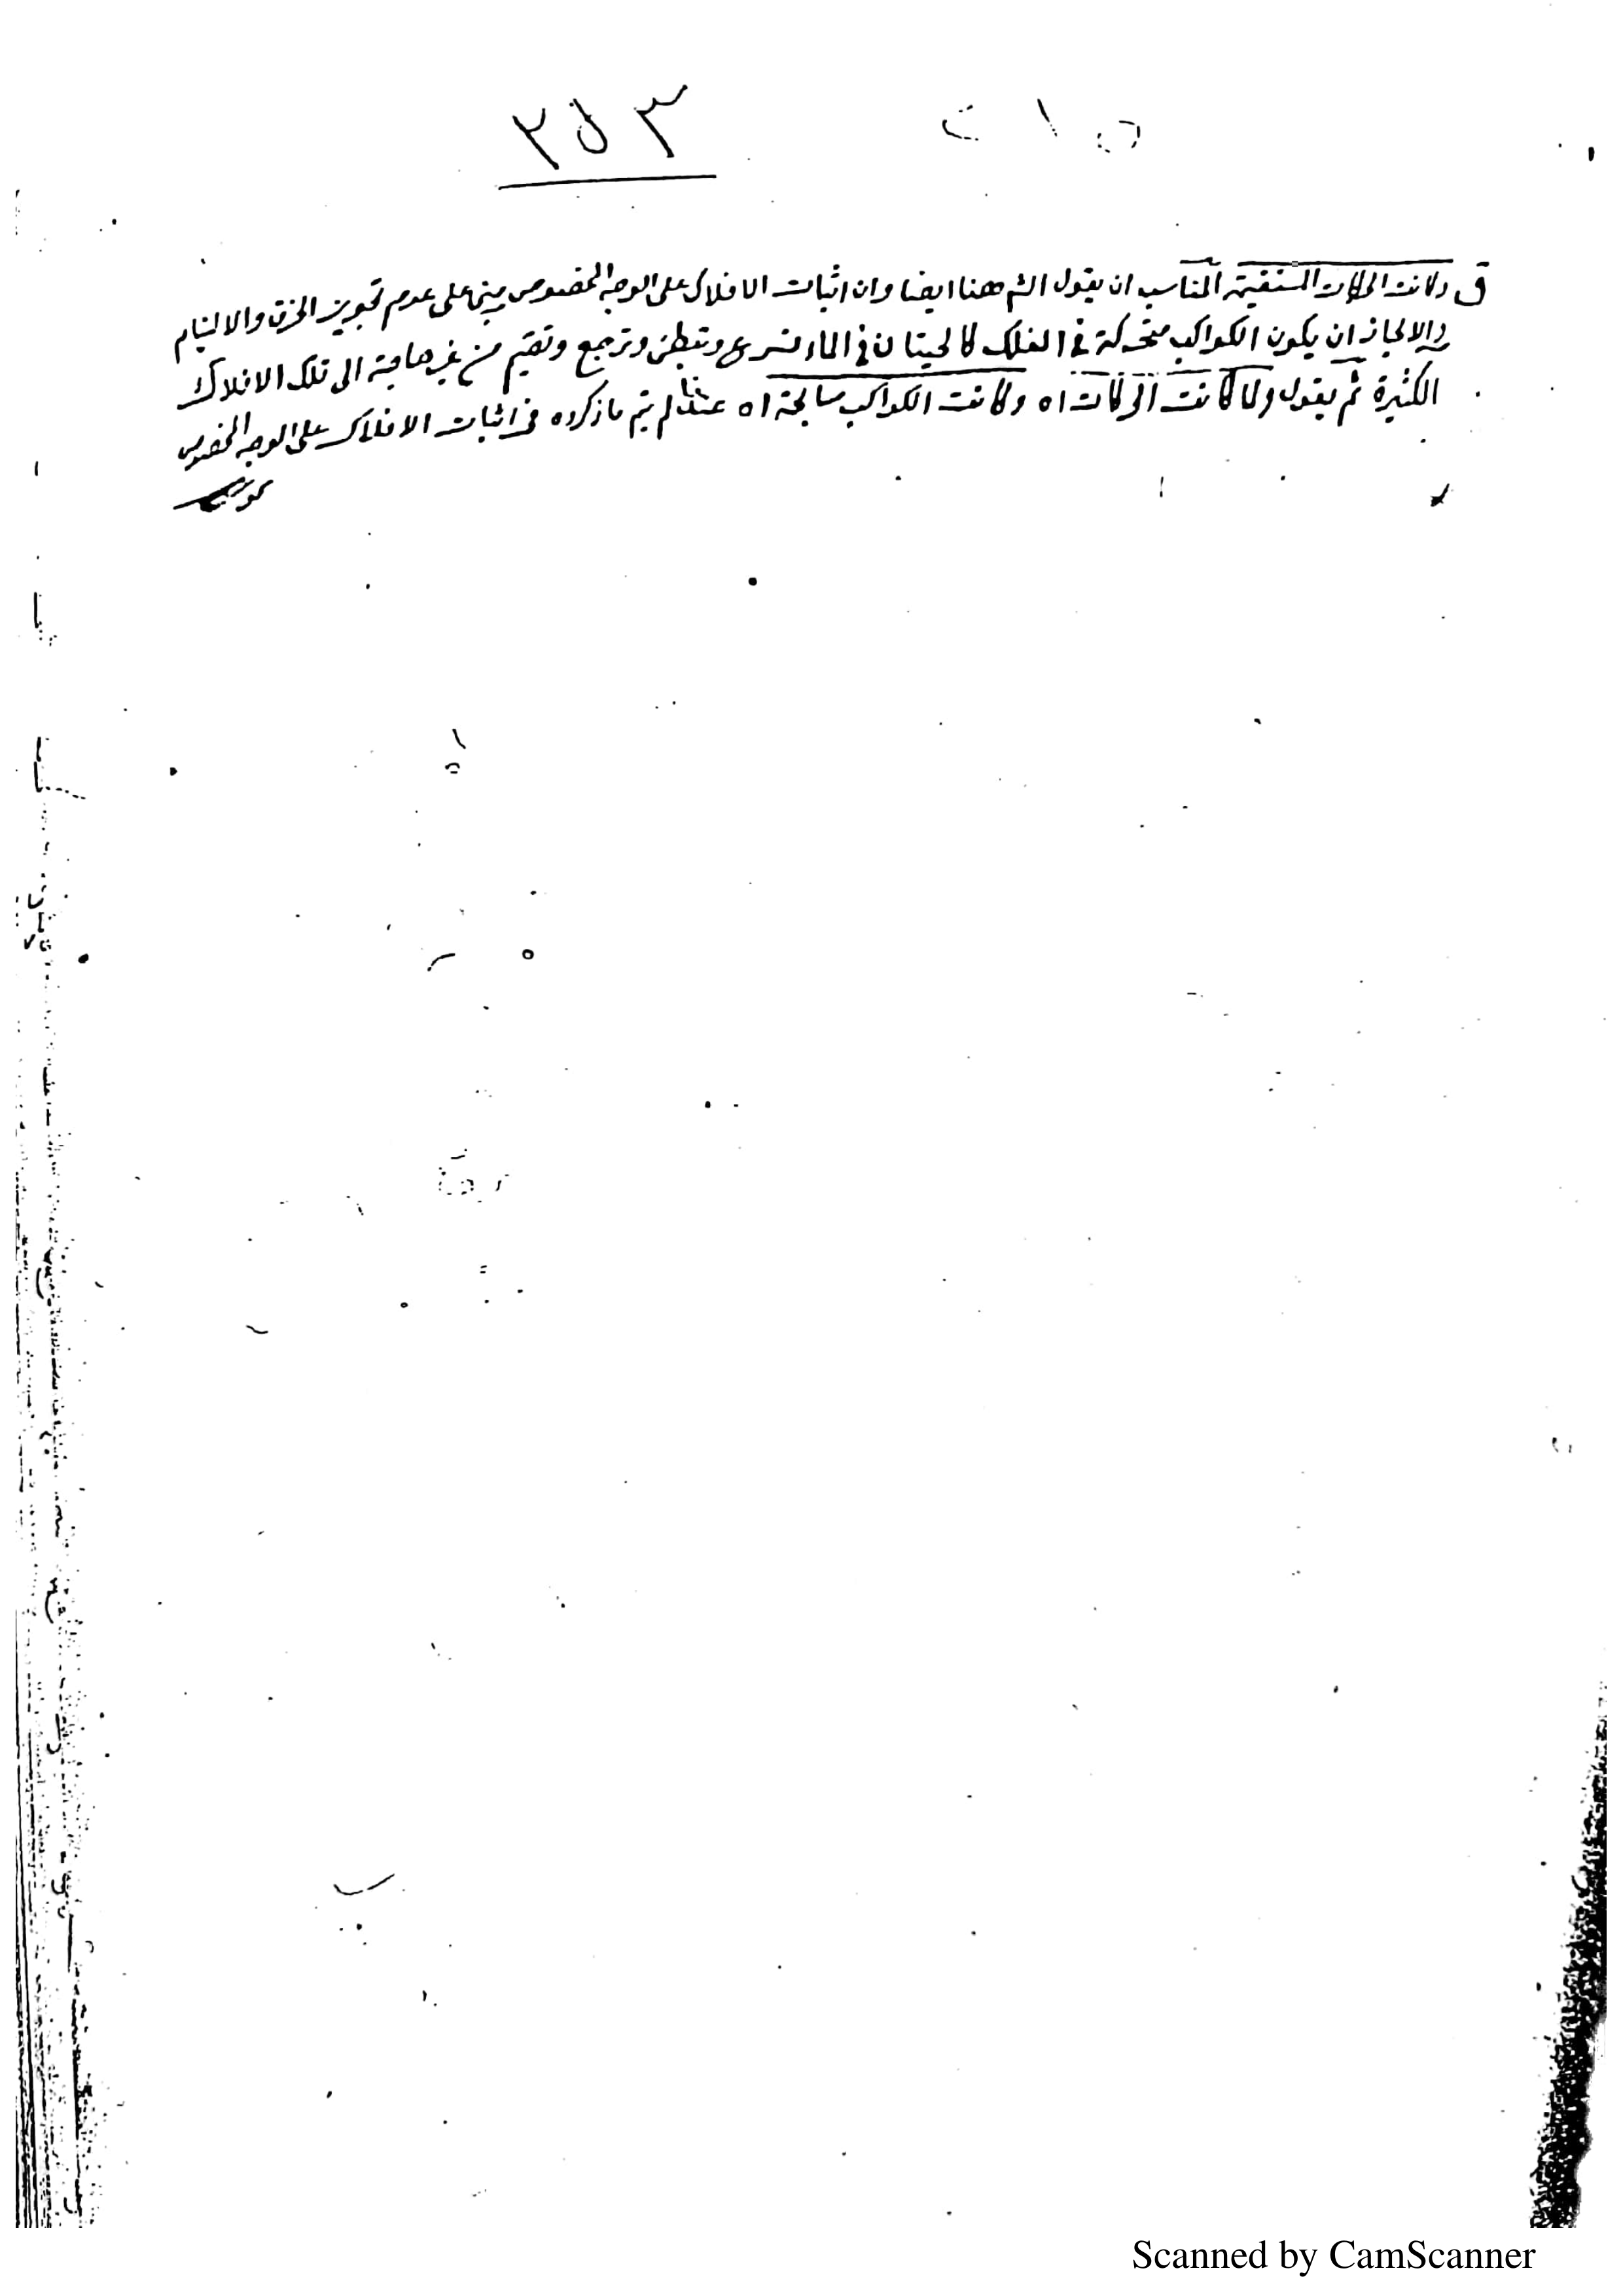 ٣٥٢
ق وكانت الحركات المستقيمة المناسب ان يقول الش ههنا ايضا وان اثبات الافلاك على الوجه المخصوص مبنى على عدم تجويز الخرق والالتيام
والا لجاز ان يكون الكواكب متحركة فى الفلك كالحيتان فى الماء تسرع وتبطئ وترجع وتقيم من غير حاجة الى تلك الافلاك
الكثيرة ثم يقول ولما كانت الحركات اه وكانت الكواكب سابحة اه عندنا لم يتم ما ذكروه فى اثبات الافلاك على الوجه المخصوص
Scanned by CamScanner